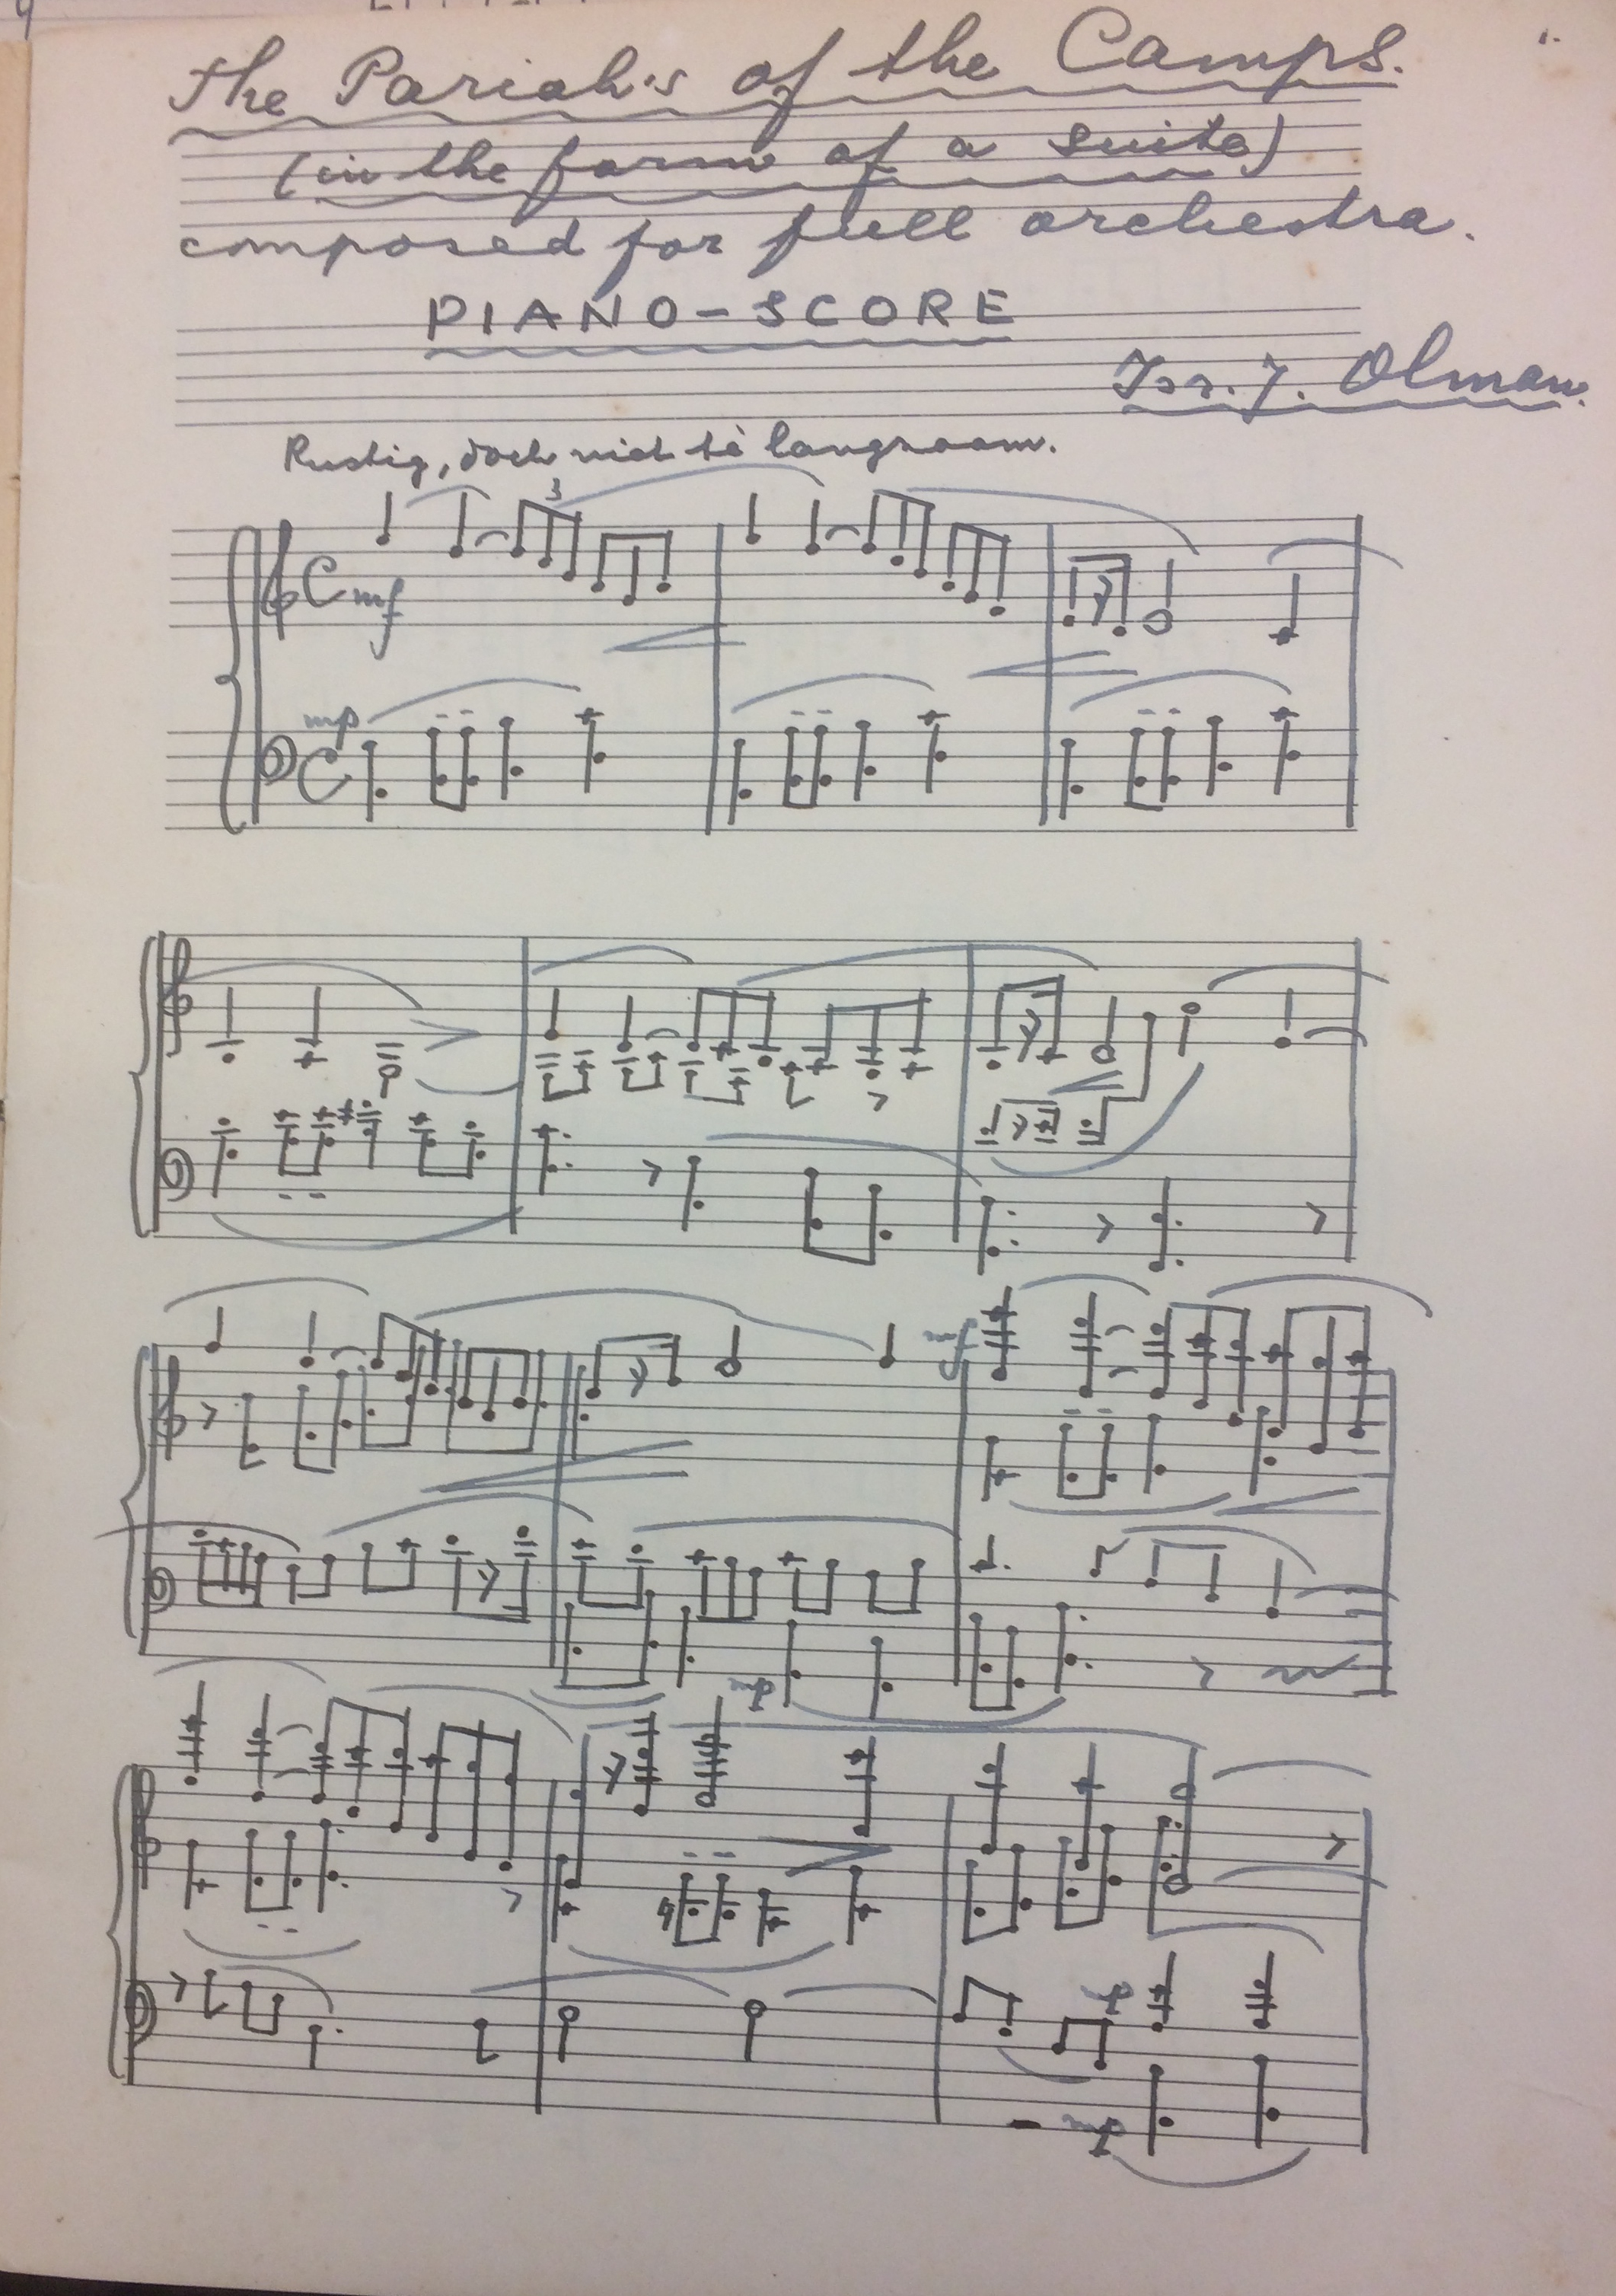 1.
The Pariah's of the Camps.
(in the form of a suite)
composed for full orchestra.
PIANO-SCORE
Isr. J. Olman.
Rustig, doch niet tè langzaam.
3
C mf
mp
C
mf
mp
p
mp